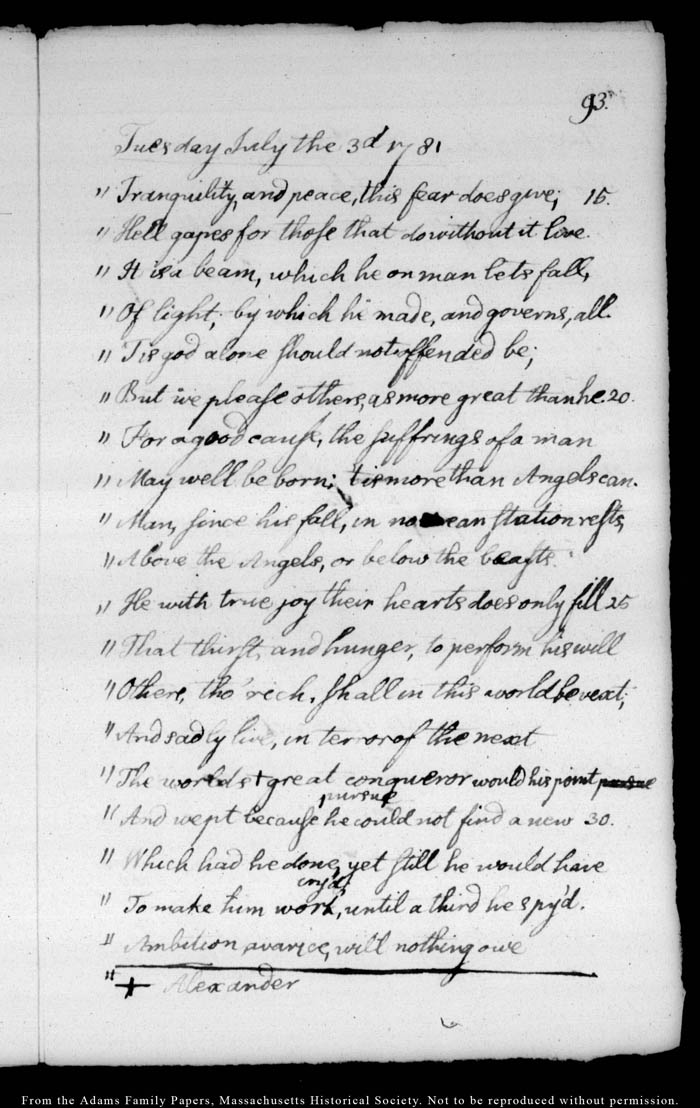 93.
Tuesday July the 3d 1781
" Tranquility, and peace, this fear does give; 15.
" Hell gapes for those that do without it love.
" It is a beam, which he on man lets fall,
" Of light; by which he made, and governs, all.
" Tis god alone should not offended be;
" But we please others, as more great than he. 20.
" For a good cause, the suffrings of a man
" May well be born; tis more than Angels can.
" Man, since his fall, in no mean station rests,
" Above the Angels, or below the beasts.
" He with true joy their hearts does only fill 25
" That thirst, and hunger, to perform his will
" Others, tho' rich, shall in this world be vext;
" And sadly live, in terror of the next
" The worlds + great conqueror would his point pursue
pursue
" And wept because he could not find a new 30.
" Which had he done, yet still he would have
cry'd
" To make him work, until a third he spy'd.
" Ambition, avarice, will nothing owe
" + Alexander
From the Adams Family Papers, Massachusetts Historical Society. Not to be reproduced without permission.